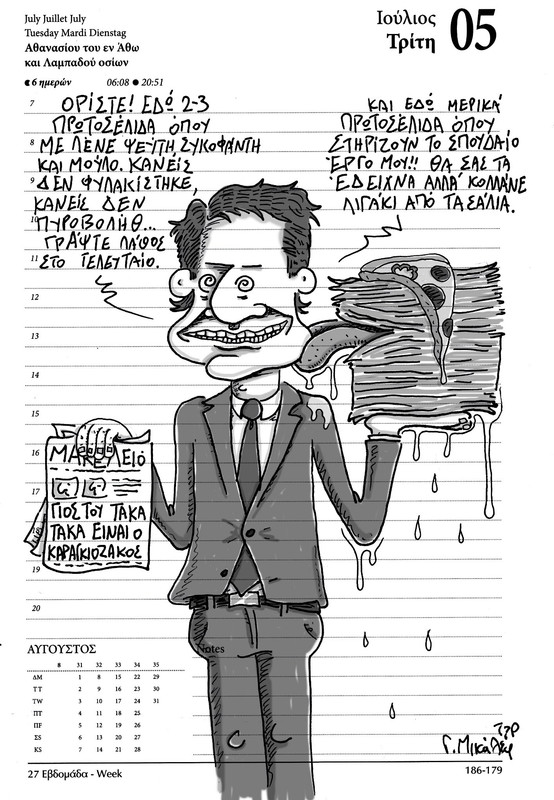 July Juillet July
Tuesday Mardi Dienstag
Αθανασίου του εν Άθω
και Λαμπαδού οσίων
6 ημερών 06:08 ● 20:51
Ιούλιος
Τρίτη
05
7
8
9
10
11
12
13
14
15
16
17
19
20
ΟΡΙΣΤΕ! ΕΔΩ 2-3
ΠΡΩΤΟΣΕΛΙΔΑ ΟΠΟΥ
ΜΕ ΛΕΝΕ ΨΕΥΤΗ, ΣΥΚΟΦΑΝΤΗ
ΚΑΙ ΜΟΥΛΟ. ΚΑΝΕΙΣ
ΔΕΝ ΦΥΛΑΚΙΣΤΗΚΕ,
ΚΑΝΕΙΣ ΔΕΝ
ΠΥΡΟΒΟΛΗΘ...
ΓΡΑΨΤΕ ΛΑΘΟΣ
ΣΤΟ ΤΕΛΕΥΤΑΙΟ.
ΚΑΙ ΕΔΩ ΜΕΡΙΚΑ
ΠΡΩΤΟΣΕΛΙΔΑ ΟΠΟΥ
ΣΤΗΡΙΖΟΥΝ ΤΟ ΣΠΟΥΔΑΙΟ
ΈΡΓΟ ΜΟΥ!! ΘΑ ΣΑΣ ΤΑ
ΈΔΕΙΧΝΑ ΑΛΛΑ ΚΟΛΛΑΝΕ
ΛΙΓΑΚΙ ΑΠΟ ΤΑ ΣΑΛΙΑ.
ΜΑΚΕΛΕΙΟ
ΓΙΟΣ ΤΟΥ ΤΑΚΑ
ΤΑΚΑ ΕΙΝΑΙ Ο
ΚΑΡΑΓΚΙΟΖΑΚΟΣ
ΑΥΓΟΥΣΤΟΣ
Notes
8 31 32 33 34 35
ΔΜ 1 8 15 22 29
ΤΤ 2 9 16 23 30
TW 3 10 17 24 31
ΠΤ 4 11 18 25
ΠF 5 12 19 26
ΣS 6 13 20 27
KS 7 14 21 28
27 Εβδομάδα - Week
186-179
Γ. Μικάλεφ